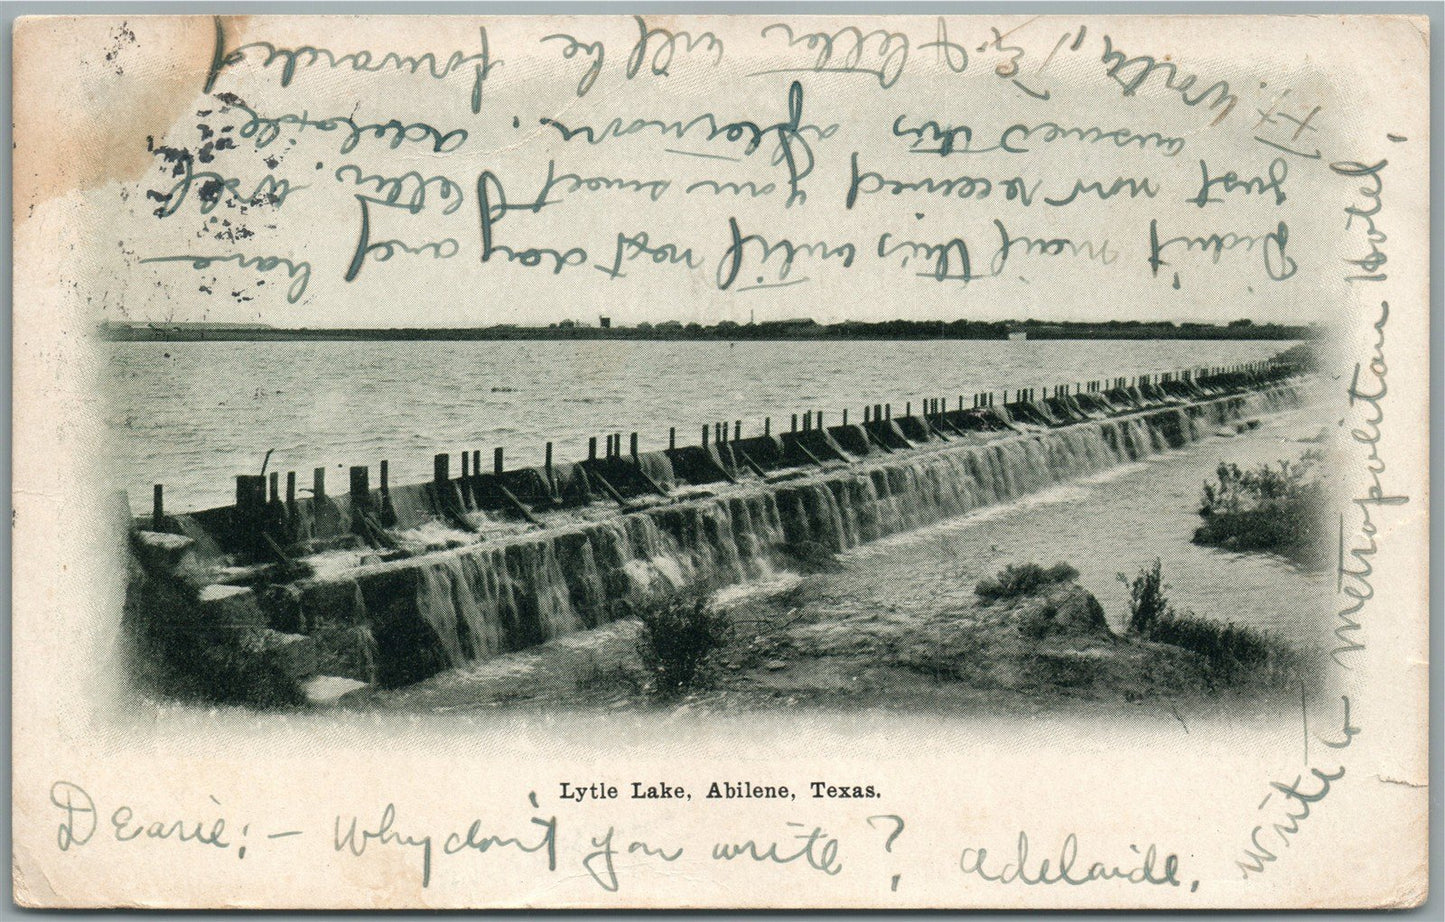 Lytle Lake, Abilene, Texas.
Dearie:— Why don't you write? Adelaide.
Write to Metropolitan Hotel,
Ft. Worth, Tex. & letter will be forwarded
Didn't mail this until next day and have
just now received your sweet letter. Will
answer this afternoon. Adelaide